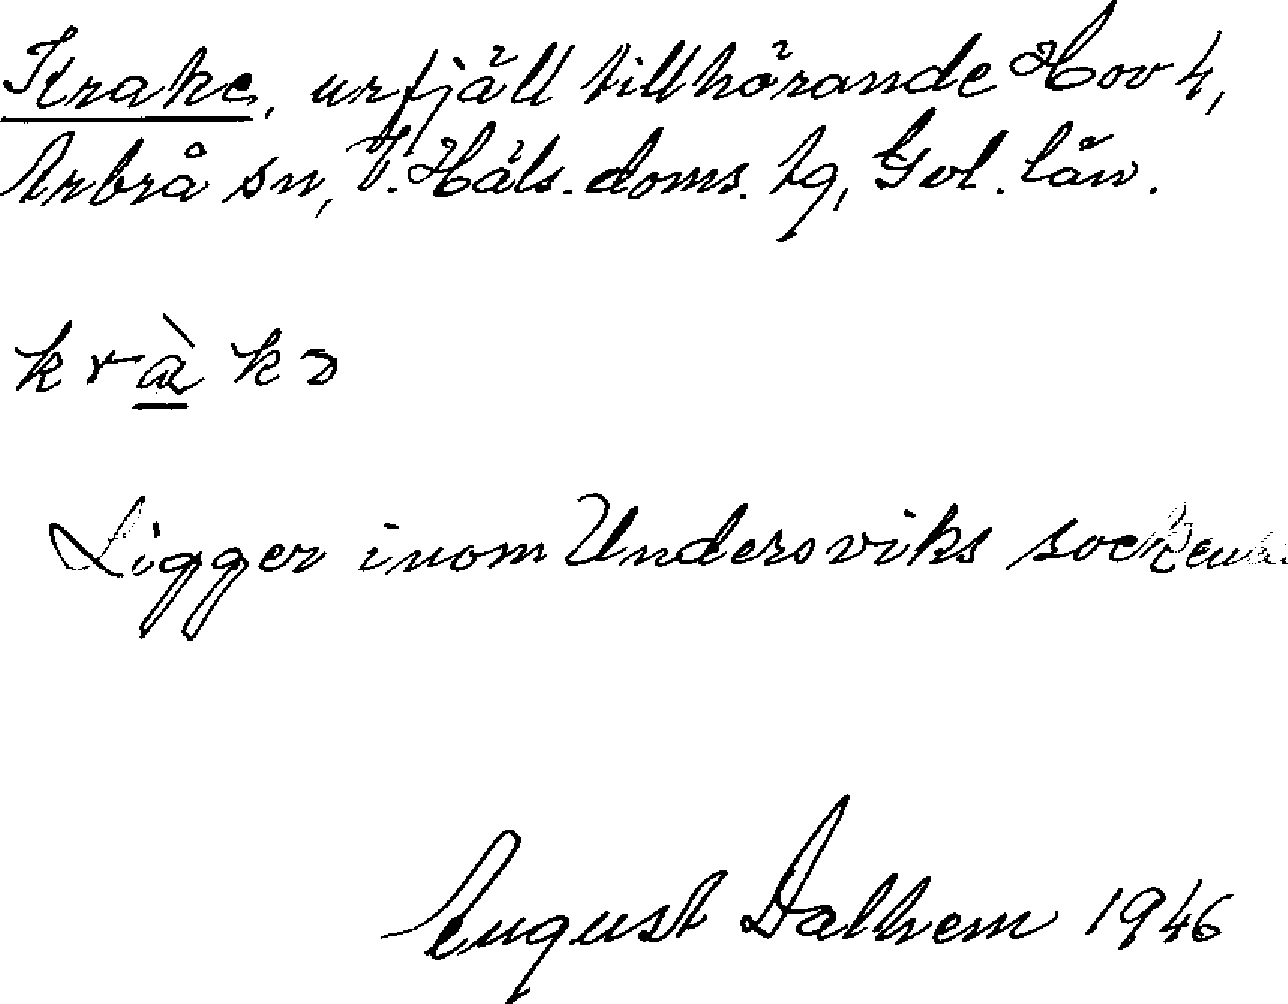 Krake, urfjäll tillhörande Hov 4,
Arbrå sn, V. Häls. doms. tg, Gvl. län.
kràkə
Ligger inom Undersviks socken
August Dalhem 1946